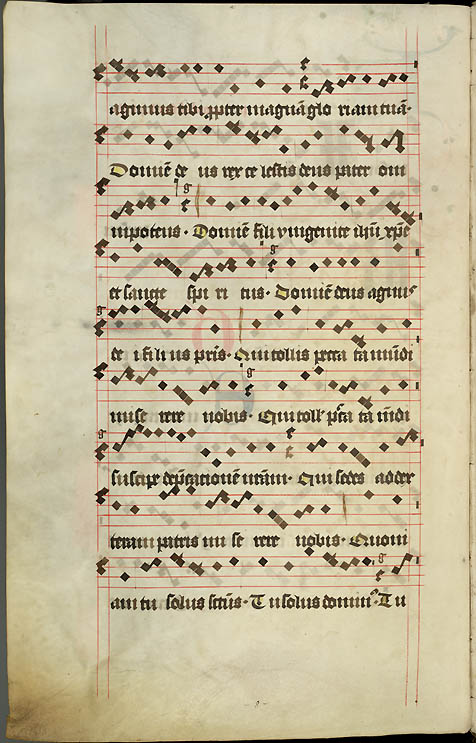 agimus tibi ꝓpter magnã glo riam tuã·
Dominẽ de us rex ce lestis deus pater om
nipotens · Dominẽ fili vnigenite ihũ xp̃e
et sancte spi ri tus · Dominẽ deus agnus
de i fili us pris · Qui tollis pcca ta mũdi
mise rere nobis · Qui toll' pc̃a ta mũdi
suscipe dep̃cationẽ nram · Qui sedes ad dex
teram patris mi se rere nobis · Quoni
am tu solus sctũs · Tu solus domin⁹ · Tu